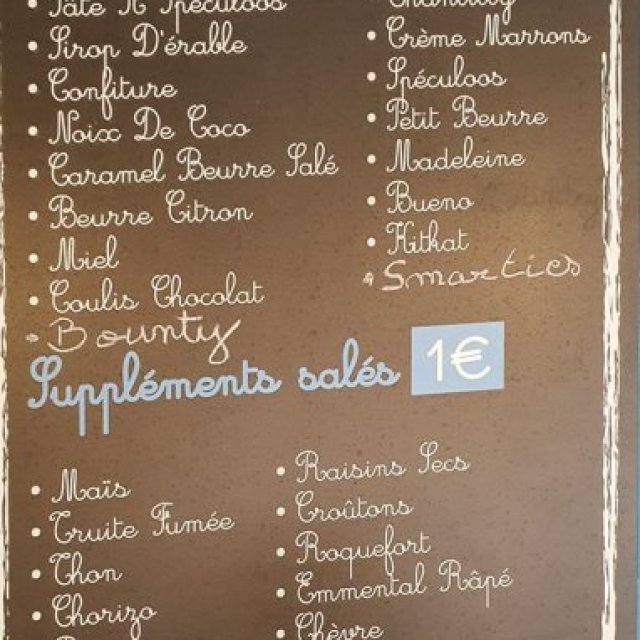 Pâte A Spéculoos
Sirop D'érable
Confiture
Noix De Coco
Caramel Beurre Salé
Beurre Citron
Miel
Coulis Chocolat
Bounty
Chantilly
Crème Marrons
Spéculoos
Petit Beurre
Madeleine
Bueno
Kitkat
Smarties
Suppléments salés 1€
Maïs
Truite Fumée
Thon
Chorizo
Raisins Secs
Croûtons
Roquefort
Emmental Râpé
Chèvre